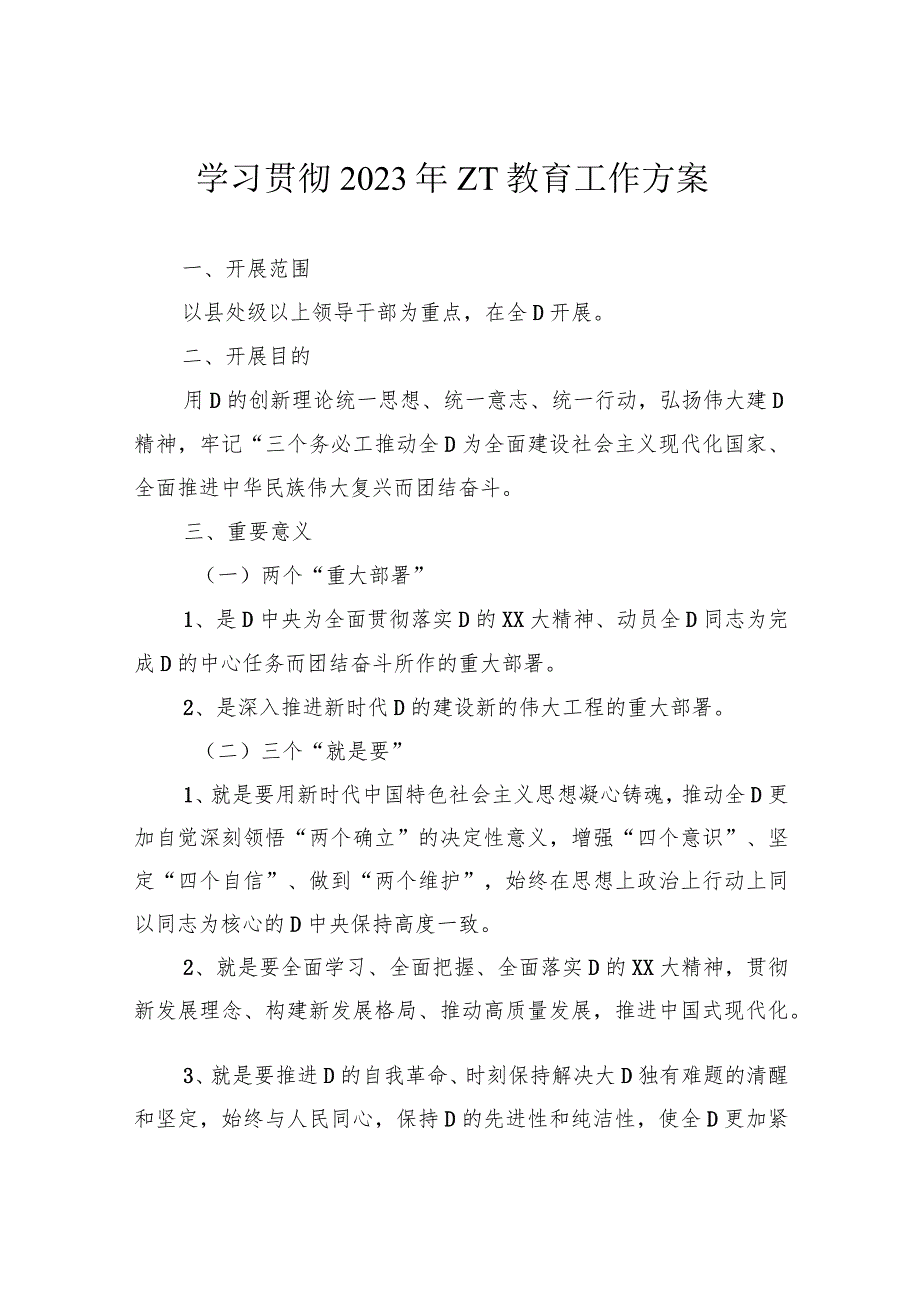 学习贯彻 2023 年 ZT 教育工作方案
一、开展范围
以县处级以上领导干部为重点，在全 D 开展。
二、开展目的
用 D 的创新理论统一思想、统一意志、统一行动，弘扬伟大建 D
精神，牢记“三个务必工推动全 D 为全面建设社会主义现代化国家、
全面推进中华民族伟大复兴而团结奋斗。
三、重要意义
（一）两个“重大部署”
1、是 D 中央为全面贯彻落实 D 的 XX 大精神、动员全 D 同志为完
成 D 的中心任务而团结奋斗所作的重大部署。
2、是深入推进新时代 D 的建设新的伟大工程的重大部署。
（二）三个“就是要”
1、就是要用新时代中国特色社会主义思想凝心铸魂，推动全 D 更
加自觉深刻领悟“两个确立”的决定性意义，增强“四个意识”、坚
定“四个自信”、做到“两个维护”，始终在思想上政治上行动上同
以同志为核心的 D 中央保持高度一致。
2、就是要全面学习、全面把握、全面落实 D 的 XX 大精神，贯彻
新发展理念、构建新发展格局、推动高质量发展，推进中国式现代化。
3、就是要推进 D 的自我革命、时刻保持解决大 D 独有难题的清醒
和坚定，始终与人民同心，保持 D 的先进性和纯洁性，使全 D 更加紧